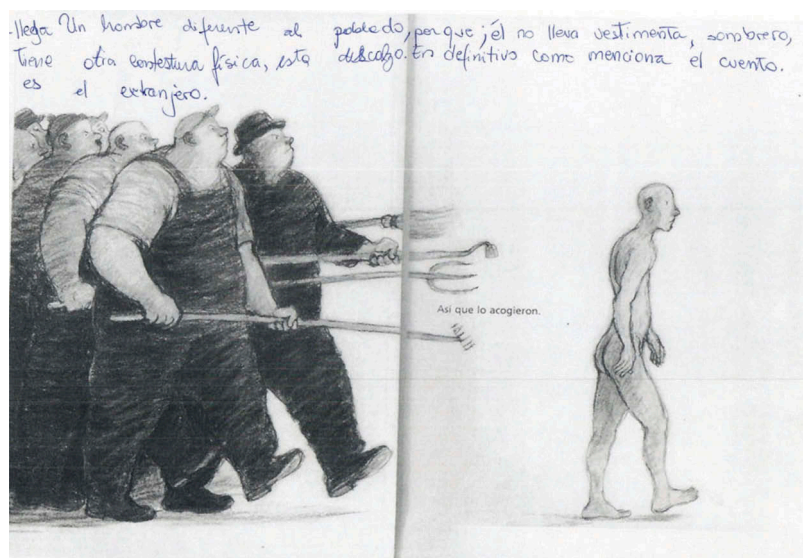 .llega Un hombre diferente al poblado, porque; él no lleva vestimenta, sombrero,
tiene otra contestura física, esta descalzo. En definitivo como menciona el cuento.
es el extranjero.
Así que lo acogieron.